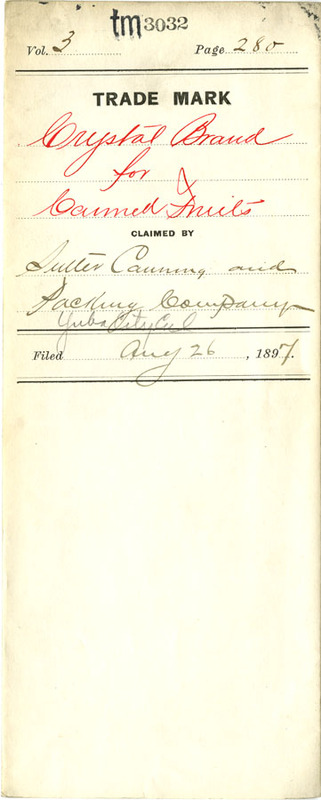 tm 3032
Vol. 3 Page 280
TRADE MARK
Crystal Brand
for
Canned Fruits
CLAIMED BY
Sutter Canning and
Packing Company
Yuba City Cal
Filed Aug 26, 1897.